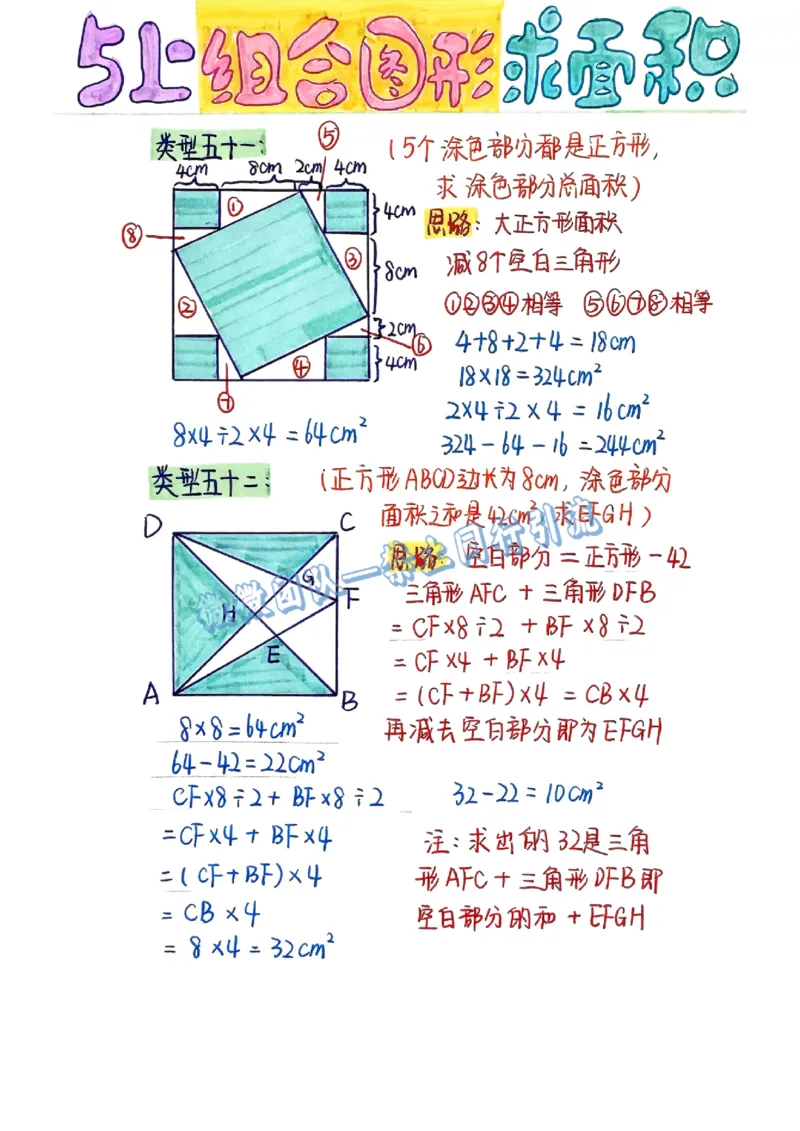 5上组合图形求面积
类型五十一:
(5个涂色部分都是正方形,
求涂色部分总面积)
4cm 8cm 2cm 4cm
⑤
① 4cm
⑧
③ 8cm
②
2cm
⑥
④ 4cm
⑦
思路: 大正方形面积
减8个空白三角形
①②③④相等 ⑤⑥⑦⑧相等
4+8+2+4=18cm
18×18=324cm²
2×4÷2×4=16cm²
8×4÷2×4=64cm²
324-64-16=244cm²
类型五十二:
(正方形ABCD边长为8cm, 涂色部分
面积之和是42cm², 求EFGH)
D C
G
F
H
E
A B
思路: 空白部分=正方形-42
三角形AFC+三角形DFB
=CF×8÷2+BF×8÷2
=CF×4+BF×4
=(CF+BF)×4=CB×4
再减去空白部分即为EFGH
8×8=64cm²
64-42=22cm²
CF×8÷2+BF×8÷2
=CF×4+BF×4
=(CF+BF)×4
=CB×4
=8×4=32cm²
32-22=10cm²
注:求出的32是三角
形AFC+三角形DFB即
空白部分的和+EFGH
微微团队—禁止同行引流